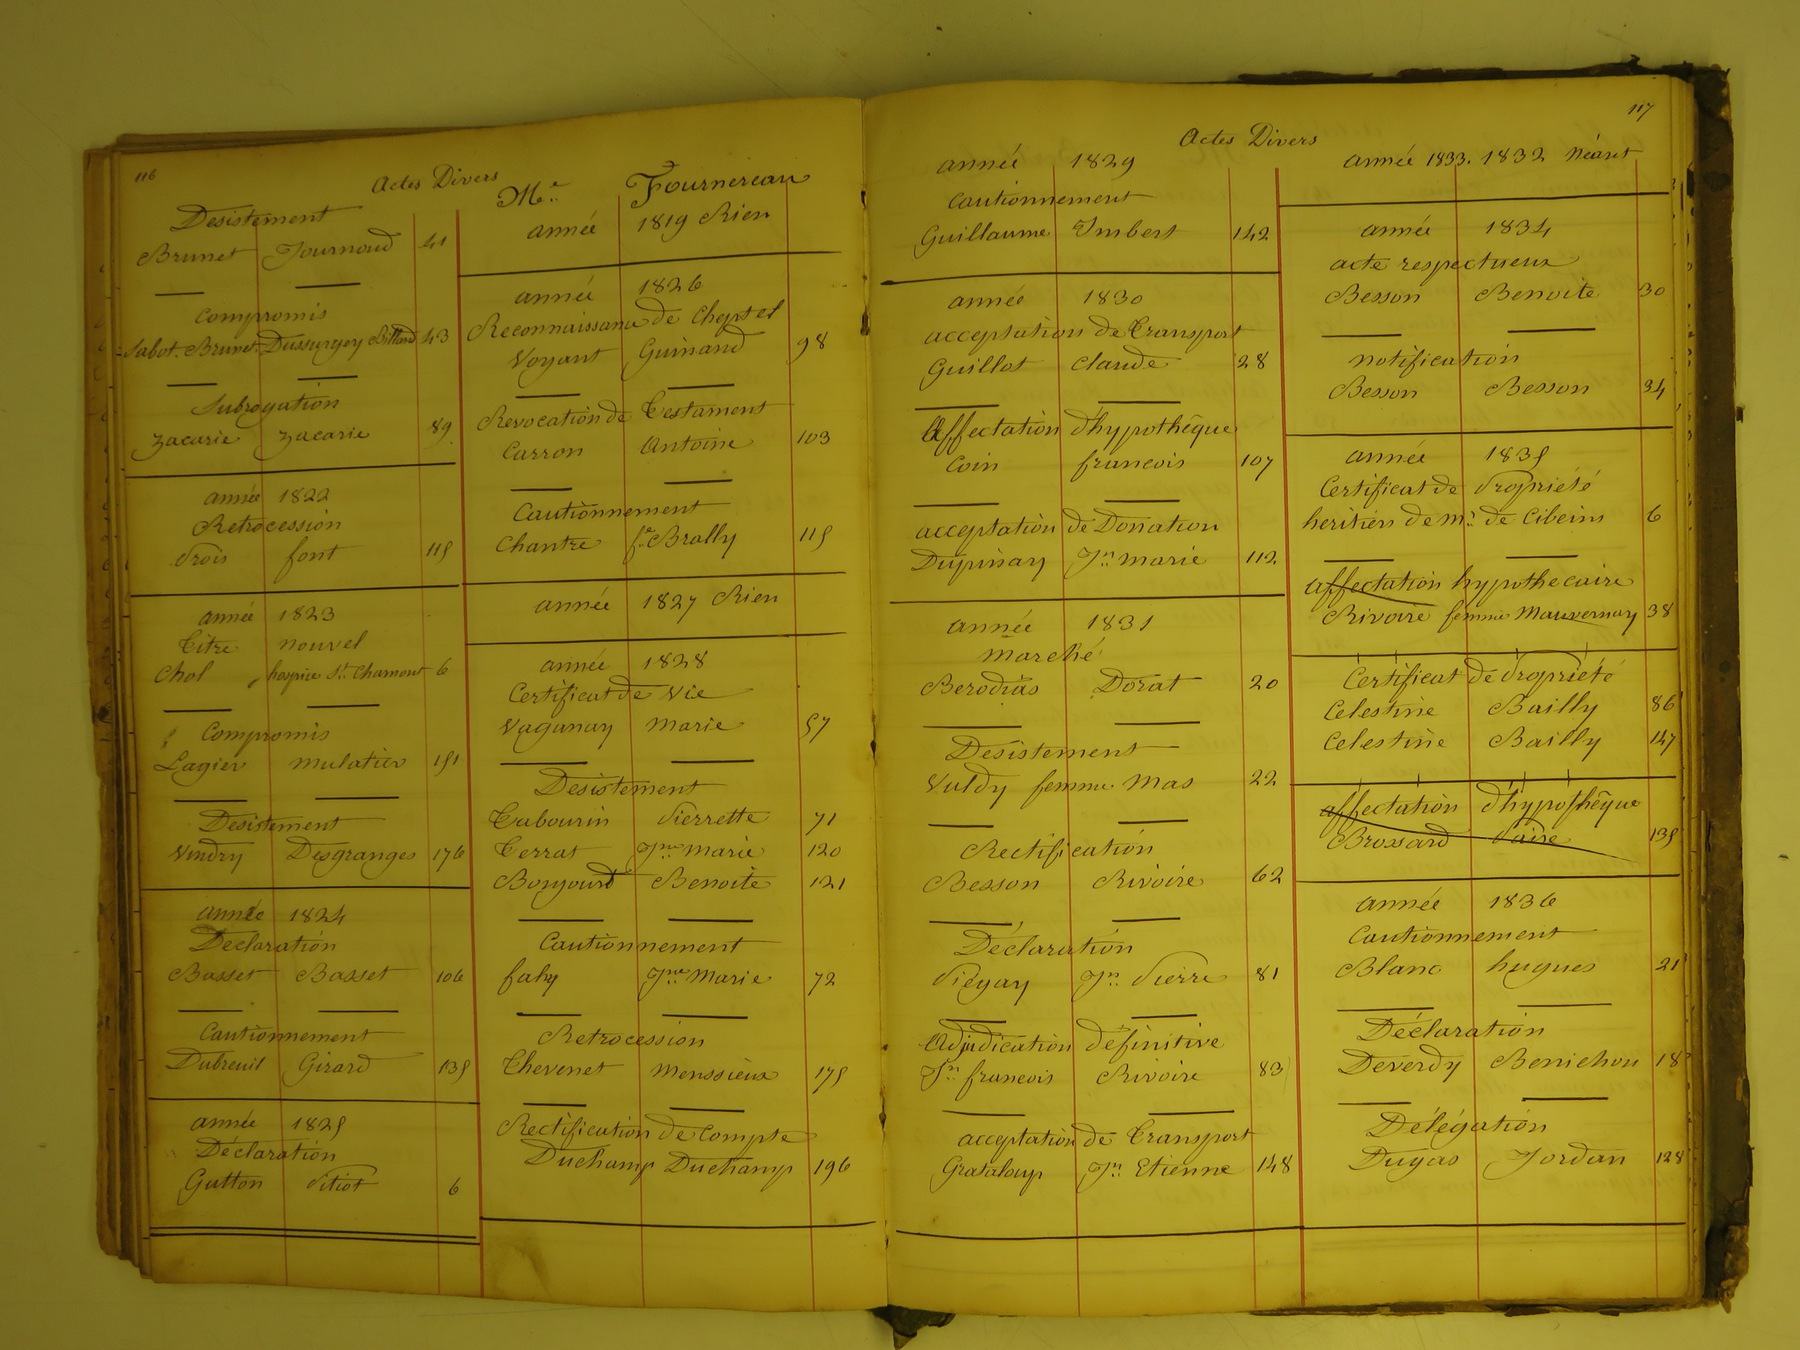 116
Actes Divers
Desistement
Brunet Journoud 41
Compromis
Sabot. Brunet Dussurgey Billard 43
Subrogation
Zacarie Zacarie 89
année 1822
Retrocession
Drois font 115
année 1823
Titre nouvel
Chol hospice St Chamont 6
Compromis
Lagier mulatier 151
Desistement
Vindry Desgranges 176
année 1824
Déclaration
Basset Basset 106
Cautionnement
Dubreuil Girard 135
année 1825
Déclaration
Gutton Pitiot 6
Me Fournereau
année 1819 Rien
année 1826
Reconnaissance de Cheptel
Voyant Guinand 98
Revocation de Testament
Carron Antoine 103
Cautionnement
Chantre fe Brally 115
année 1827 Rien
année 1828
Certificat de Vie
Vaganay marie 57
Desistement
Tabourin Pierrette 71
Terrat Jne marie 120
Bonjourd Benoite 121
Cautionnement
fahy Jne Marie 72
Retrocession
Thevenet menssieux 175
Rectification de Compte
Duchamp Duchamp 196
117
Actes Divers
année 1829
Cautionnement
Guillaume Imbert 142
année 1830
acceptation de Transport
Guillot Claude 28
Affectation d'hypothêque
Coin francois 107
acceptation de Donation
Dupinay Jn marie 112
année 1831
marché
Berodias Dorat 20
Desistement
Vuldy femme Mas 22
Rectification
Besson Rivoire 62
Déclaration
Piegay Jn Pierre 81
Adjudication définitive
Jn francois Rivoire 83
acceptation de Transport
Grataloup Jn Etienne 148
année 1833. 1832 Néant
année 1834
acte respectueux
Besson Benoite 30
notification
Besson Besson 34
année 1835
Certificat de Propriété
heritiers de mr de Cibeins 6
affectation hypothecaire
Rivoire femme Mauvernay 38
Certificat de Propriété
Celestine Bailly 86
Celestine Bailly 147
affectation d'hypothêque
Brossard Paire 135
année 1836
Cautionnement
Blanc hugues 21
Déclaration
Deverdy Benichou 18
Délégation
Dugas Jordan 128